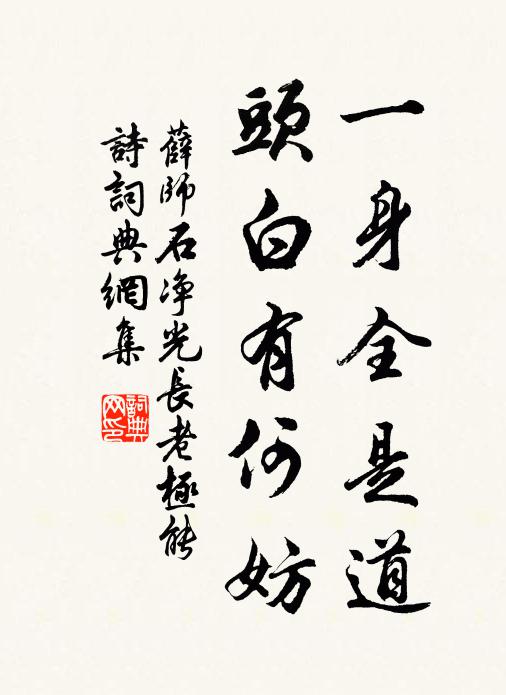 一身全是道
頭白有何妨
薛師石净光長老極能
詩詞典網集
詞典
网印